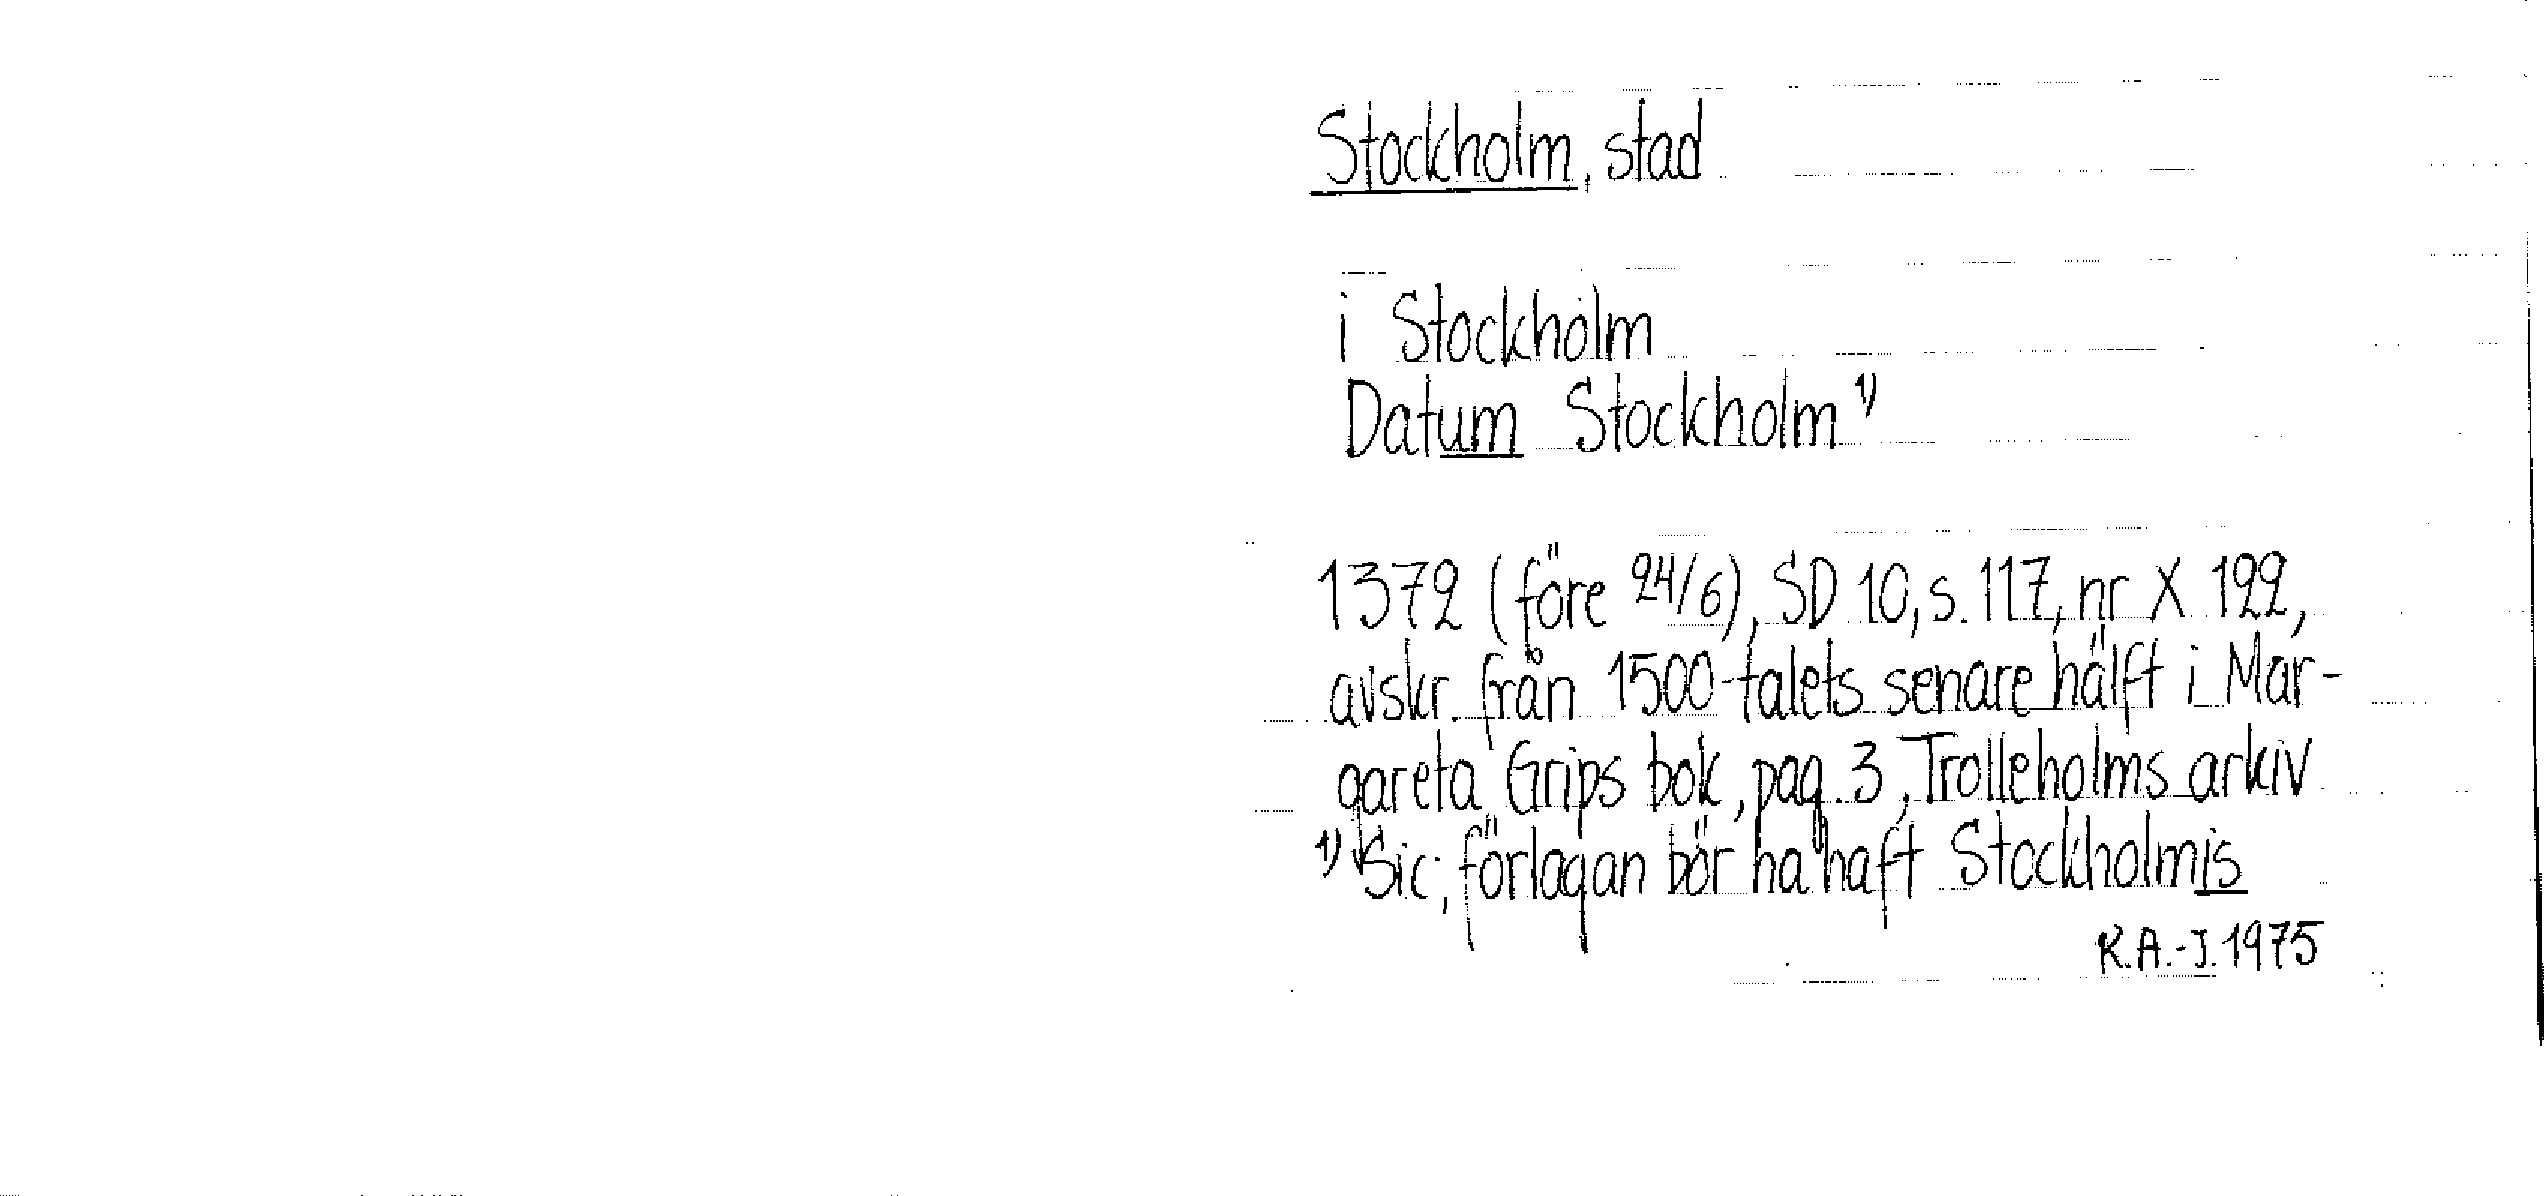 Stockholm, stad
i Stockholm
Datum Stockholm 1)
1372 (före 24/6), SD 10, s. 117, nr X 122,
avskr. från 1500-talets senare hälft i Mar-
gareta Grips bok, pag. 3, Trolleholms arkiv
1) Sic; förlagan bör ha haft Stockholmis
R.A.-I. 1975